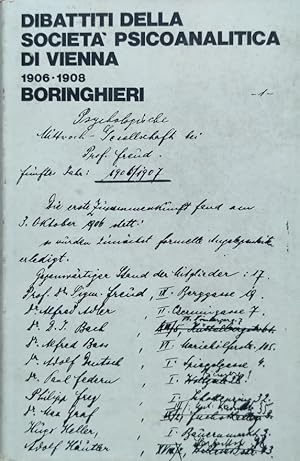 DIBATTITI DELLA
SOCIETA' PSICOANALITICA
DI VIENNA
1906·1908
BORINGHIERI
-1-
Psychologische
Mittwoch-Gesellschaft bei
Prof. Freud.
fünftes Jahr: 1906/1907
Die erste Zusammenkunft fand am
3. Oktober 1906 statt:
es wurden zunächst formelle Angelegenheiten
erledigt.
Gegenwärtiger Stand der Mitglieder: 17.
Prof. Dr. Sigm. Freud, IX. Berggasse 19.
Dr. Alfred Adler, II. Czerningasse 7.
Dr. D. J. Bach,
Dr. Alfred Bass, VI. Mariahilferstr. 105.
Dr. Adolf Deutsch, I. Spiegelgasse 4.
Dr. Paul Federn, I.
Philipp Frey, I.
Dr. Max Graf,
Hugo Heller, I. Bauernmarkt 3.
Adolf Häutler,